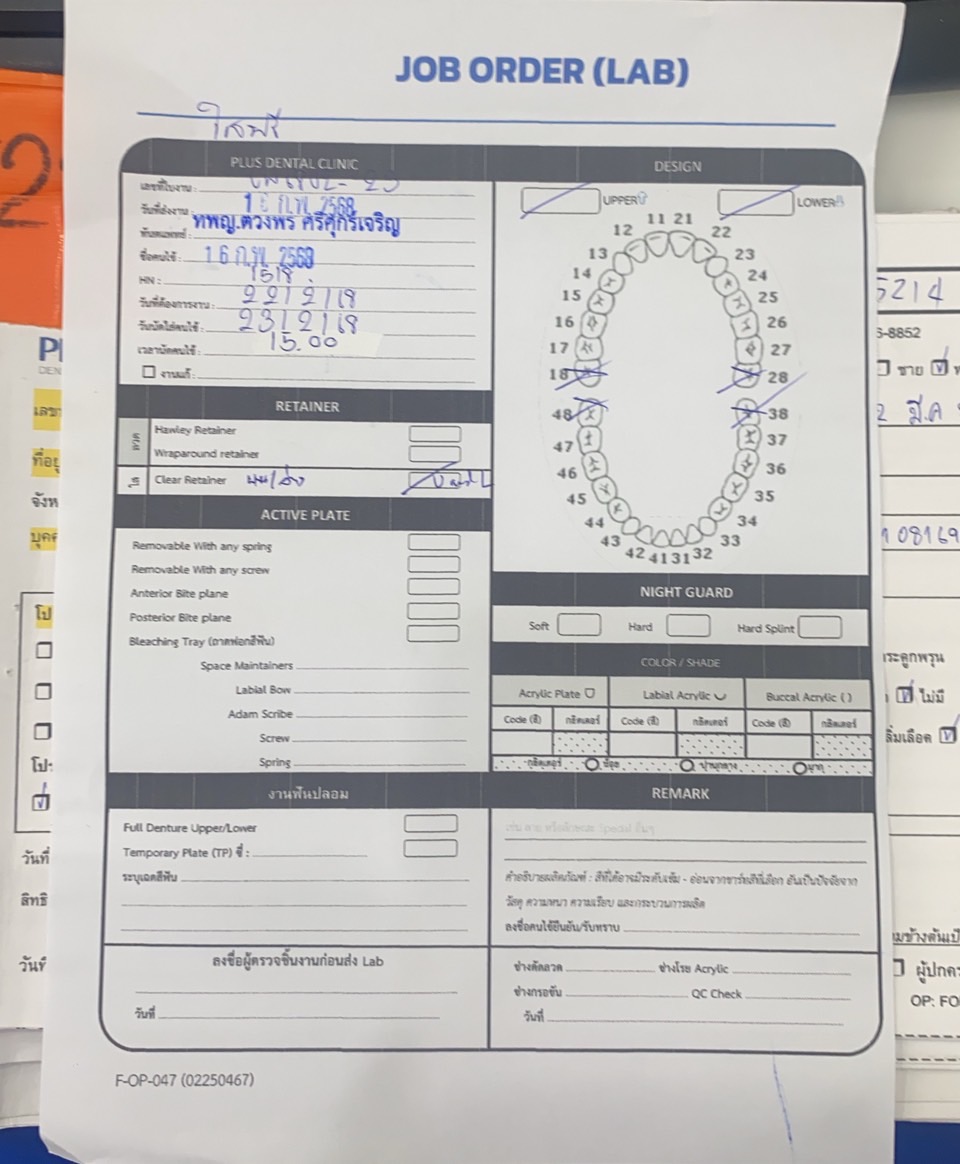 JOB ORDER (LAB)
ใสฟรี
PLUS DENTAL CLINIC
เลขที่ใบงาน :
วันที่ส่งงาน : 16 ก.พ. 2568
ทันตแพทย์ : ทพญ.ดวงพร ศรีศุภร์เจริญ
ชื่อคนไข้ : 16 ก.พ. 2568
HN : 1518
วันที่ต้องการงาน : 22/2/68
วันนัดใส่คนไข้ : 23/2/68
เวลานัดคนไข้ : 15.00
งานแก้ :
RETAINER
ลวด
Hawley Retainer
Wraparound retainer
ใส
Clear Retainer บน/ล่าง U and L
ACTIVE PLATE
Removable With any spring
Removable With any screw
Anterior Bite plane
Posterior Bite plane
Bleaching Tray (ถาดฟอกสีฟัน)
Space Maintainers
Labial Bow
Adam Scribe
Screw
Spring
งานฟันปลอม
Full Denture Upper/Lower
Temporary Plate (TP) ซี่ :
ระบุเฉดสีฟัน
ลงชื่อผู้ตรวจชิ้นงานก่อนส่ง Lab
วันที่
DESIGN
UPPER
LOWER
11 21
12 22
13 23
14 24
15 25
16 26
17 27
18 28
48 38
47 37
46 36
45 35
44 34
43 33
42 41 31 32
NIGHT GUARD
Soft Hard Hard Splint
COLOR / SHADE
Acrylic Plate Labial Acrylic Buccal Acrylic ( )
Code (สี) กลิตเตอร์ Code (สี) กลิตเตอร์ Code (สี) กลิตเตอร์
กลิตเตอร์ น้อย ปานกลาง มาก
REMARK
คำอธิบายผลิตภัณฑ์ : สีที่ได้อาจมีระดับเข้ม - อ่อนจากชาร์ทสีที่เลือก อันเป็นปัจจัยจาก
วัสดุ ความหนา ความเรียบ และกระบวนการผลิต
ลงชื่อคนไข้ยืนยัน/รับทราบ
ช่างดัดลวด ช่างโรย Acrylic
ช่างกรอขัด QC Check
วันที่
F-OP-047 (02250467)
5214
6-8852
ชาย
2 มี.ค
08169
ไม่มี
OP: FO
จังห
บุคค
โป
วันที่
สิทธิ
วันที่